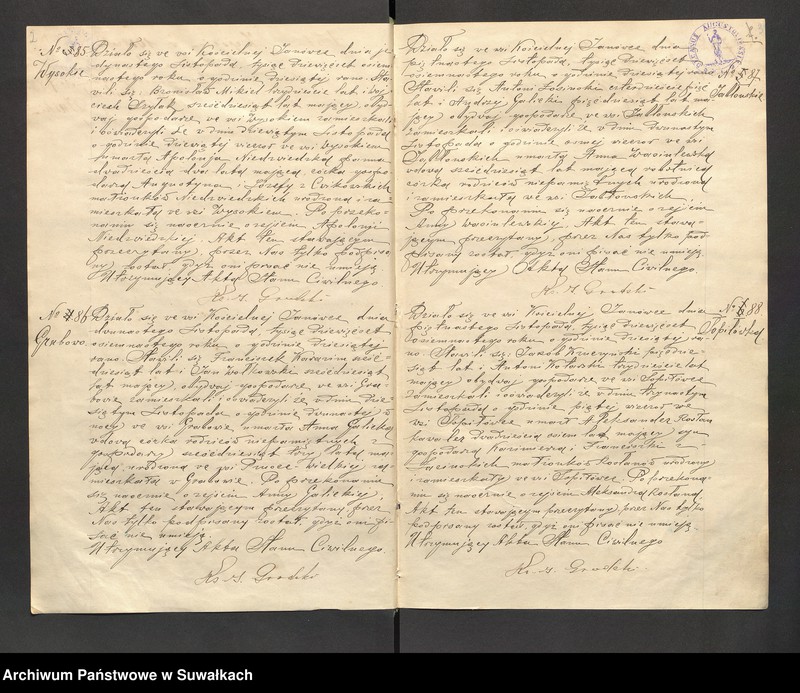 2
No 385
Wysokie
Działo się we wsi Kościelnej Janówce dnia je
dynastego Listopada, tysiąc dziewięćset osiem
nastego roku o godzinie dziesiątej rano. Sta
wili się: Bronisław Mikiel trzydzieście lat i Woj
ciech Szylak sześćdziesiąt lat mający, obyd
waj gospodarze, we wsi Wysokiem zamieszkali
i oświadczyli że w dniu dziewiątym Listopada
o godzinie dziewiątej wieczór we wsi Wysokiem
umarła Apolonja Niedzwiedzka panna
dwadzieścia dwa lata mająca, córka gospo
darza Augustyna i Józefy z Cwikowskich
małżonków Niedzwiedzkich urodzona i za
mieszkała we wsi Wysokiem. Po przeko
naniu się naocznie o zejściu Apolonji
Niedzwiedzkiej, Akt ten stawającym
przeczytany, przez Nas tylko podpisa
ny został, gdyż oni pisać nie umieją.
Utrzymujący Akta Stanu Cywilnego
Ks. J. Grodzki
No 486
Grabowo
Działo się we wsi Kościelnej Janówce dnia
dwunastego Listopada, tysiąc dziewięćset
osiemnastego roku o godzinie dziesiątej
rano. Stawili się Franciszek sześć
dziesiąt lat i Jan sześćdziesiąt
lat mający, obydwaj gospodarze we wsi Gra
bowie zamieszkali i oświadczyli że w dniu dzie
siątym Listopada o godzinie dwunastej w
nocy we wsi Grabowie umarła Anna Galicka,
wdowa córka rodziców niepamiętnych z
gospodarzy sześćdziesiąt trzy lata ma
jąca, urodzona we wsi Pruska-wielkiej za
mieszkała w Grabowie. Po przekonaniu
się naocznie o zejściu Anny Galickiej,
Akt ten stawającym przeczytany przez
Nas tylko podpisany został, gdyż oni pi
sać nie umieją.
Utrzymujący Akta Stanu Cywilnego.
Ks. J. Grodzki
No 587
Jabłońskie
Działo się we wsi Kościelnej Janówce dnia
piętnastego Listopada, tysiąc dziewięćset
osiemnastego roku, o godzinie dziesiątej rano
Stawili się: Antoni czterdzieście pięć
lat i Andrzej Galicki pięćdziesiąt lat ma
jący obydwaj gospodarze we wsi Jabłońskich
zamieszkali i oświadczyli że w dniu dwunastym
Listopada o godzinie ósmej wieczór we wsi
Jabłońskich umarła Anna Wasilewska
wdowa sześćdziesiąt lat mająca robotnica
córka rodziców niepamiętnych urodzona
i zamieszkała we wsi Jabłońskich.
Po przekonaniu się naocznie o zejściu
Anny Wasilewskiej, Akt ten stawa-
jącym przeczytany, przez Nas tylko pod
pisany został, gdyż oni pisać nie umieją.
Utrzymujący Akta Stanu Cywilnego.
Ks. J. Grodzki
No 688
Topiłówka
Działo się we wsi Kościelnej Janówce dnia
piętnastego Listopada, tysiąc dziewięćset
osiemnastego roku, o godzinie dziesiątej ra
no. Stawili się: Jakób Kuczyński pięćdzie-
siąt lat i Antoni trzydzieście lat
mający obydwaj gospodarze we wsi Topiłówce
zamieszkali i oświadczyli że w dniu trzynastym
Listopada o godzinie piątej wieczór we
wsi Topiłówce umarł Aleksander Kosłan
kawaler dwadzieścia osiem lat mający syn
gospodarza Kazimierza i Franciszki z
małżonków Kosłanów urodzony
i zamieszkały we wsi Topiłówce. Po przekona-
niu się naocznie o zejściu Aleksandra Kosłana,
Akt ten stawającym przeczytany, przez Nas tylko
podpisany został, gdyż oni pisać nie umieją.
Utrzymujący Akta Stanu Cywilnego
Ks. J. Grodzki
Archiwum Państwowe w Suwałkach